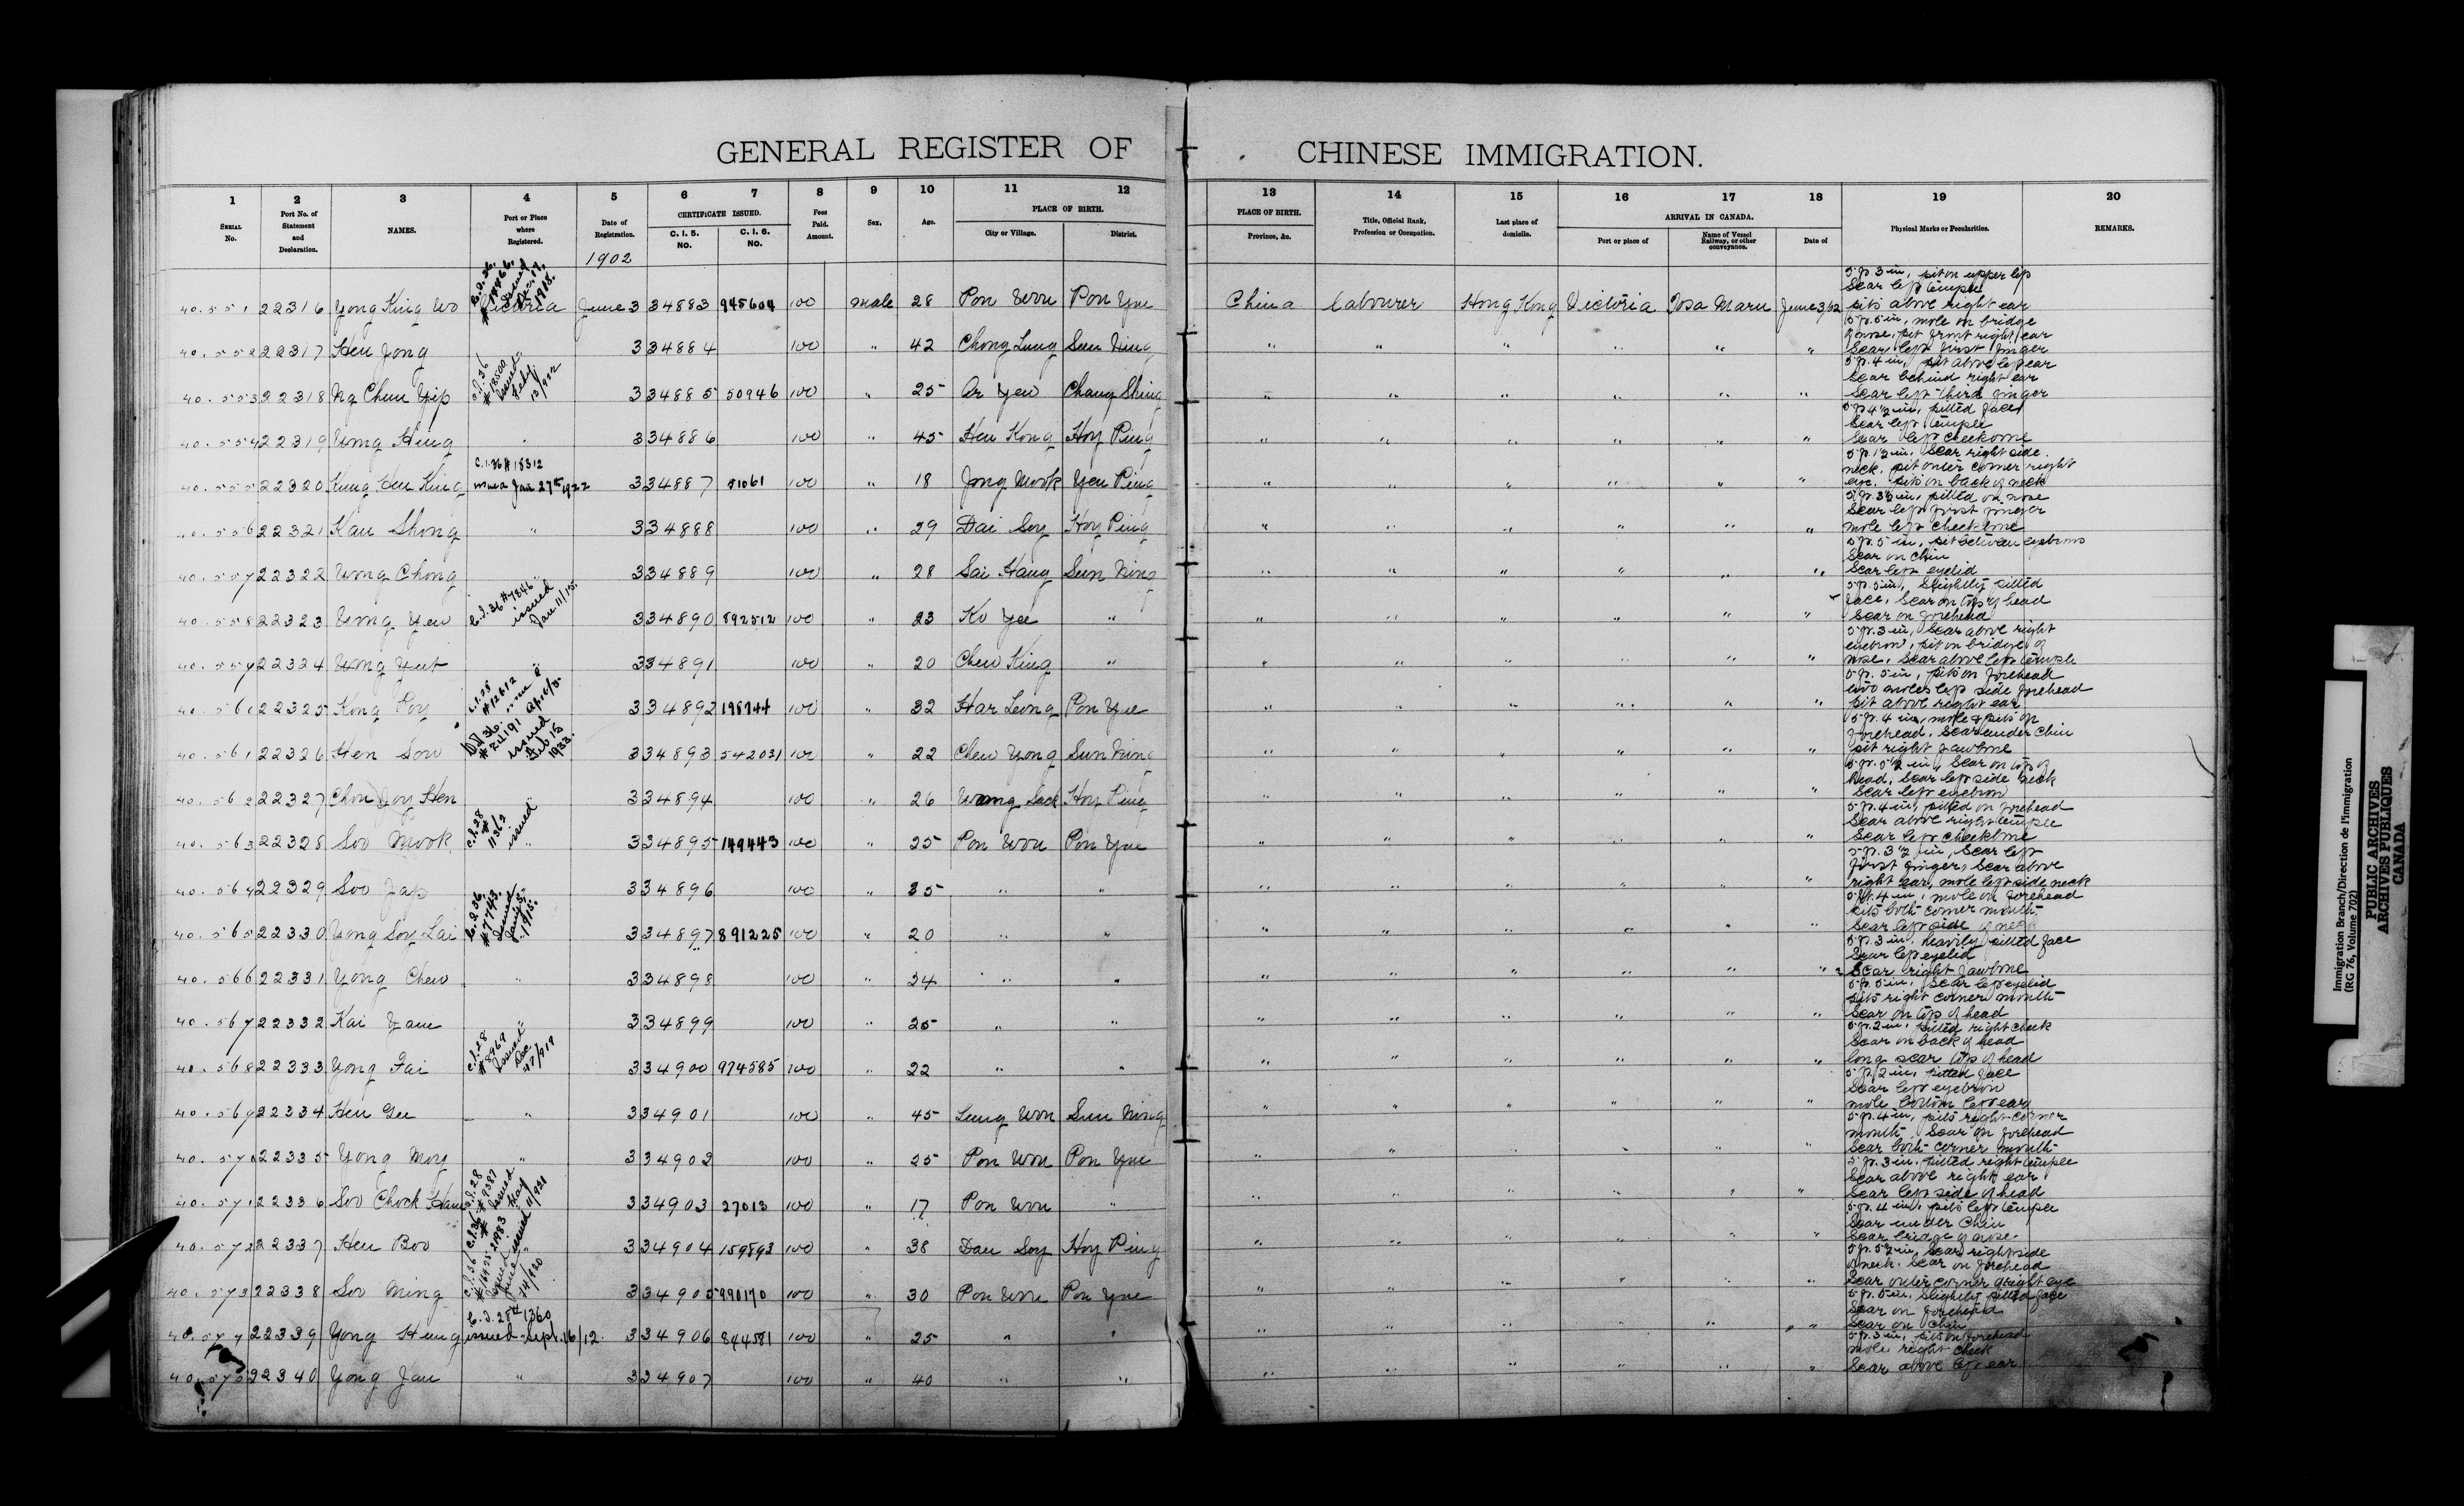 GENERAL REGISTER OF CHINESE IMMIGRATION.
1 2 3 4 5 6 7 8 9 10 11 12 13 14 15 16 17 18 19 20
SERIAL No.
Port No. of Statement and Declaration.
NAMES.
Port or Place where Registered.
Date of Registration.
CERTIFICATE ISSUED.
C. I. 5. No.
C. I. 6. No.
Fees Paid. Amount.
Sex.
Age.
PLACE OF BIRTH.
City or Village.
District.
PLACE OF BIRTH.
Province, &c.
Title, Official Rank, Profession or Occupation.
Last place of domicile.
ARRIVAL IN CANADA.
Port or place of
Name of Vessel Railway, or other conveyance.
Date of
Physical Marks or Peculiarities.
REMARKS.
1902
40.551 22316 Yong King Wo Victoria June 3 34883 945604 100 Male 28 Pon Won Pon Yue China Labourer Hong Kong Victoria Tosa Maru June 3/02 5 ft. 3 in, pit on upper lip Scar left temple pits above right ear
40.552 22317 Hen Jong 3 34884 100 " 42 Chong Lung Sun Ning " " " " " " 5 ft. 5 in, mole on bridge of nose, pit front right ear Scar left first finger
40.553 22318 Ng Chun Yip C.I.36 #18500 issued Feby 13/922 3 34885 50946 100 " 25 Ar Yen Chang Shing " " " " " " 5 ft. 4 in, pit above left ear Scar behind right ear Scar left third finger
40.554 22319 Wong Hing " 3 34886 100 " 45 Hen Kong Hoy Ping " " " " " " 5 ft 4½ in, pitted face Scar left temple Scar left cheekbone
40.555 22320 Kung Hen King C.I.36 # 18312 issued Jan 27th 1922 3 34887 51061 100 " 18 Jong Mook Yen Ping " " " " " " 5 ft. 1½ in. Scar right side neck, pit outer corner right eye. pits on back of neck
40.556 22321 Kau Shong " 3 34888 100 " 29 Dai Soy Hoy Ping " " " " " " 5 ft. 3½ in, pitted on nose Scar left first finger mole left cheekbone
40.557 22322 Wong Chong " 3 34889 100 " 28 Sai Hang Sun Ning " " " " " " 5 ft. 5 in, pit between eyebrows Scar on chin Scar left eyelid
40.558 22323 Wong Yew C.I.36 #7846 issued Jan 11/15. 3 34890 892512 100 " 23 Ko Yee " " " " " " " 5 ft. 5 in, Slightly pitted face, Scar on top of head Scar on forehead
40.559 22324 Wong Yut " 3 34891 100 " 20 Chew King " " " " " " " 5 ft. 3 in, Scar above right eyebrow, pit on bridge of nose. Scar above left temple
40.560 22325 Kong Poy C.I.28 #12612 3 34892 198744 100 " 32 Har Leong Pon Yue " " " " " " 5 ft. 5 in, pits on forehead two moles left side forehead pit above right ear
40.561 22326 Hen Sow #24191 issued Feb 15 1933. 3 34893 542031 100 " 22 Chew Yong Sun Ning " " " " " " 5 ft. 4 in, mole & pits on forehead. Scar under chin pit right jawbone
40.562 22327 Chou Joy Hen " 3 34894 100 " 26 Wong Sack Hoy Ping " " " " " " 5 ft. 5½ in, Scar on top of head, Scar left side neck Scar left eyebrow
40.563 22328 Soo Mook C.I.28 # 11362 issued 3 34895 149443 100 " 25 Pon Won Pon Yue " " " " " " 5 ft. 4 in, pitted on forehead Scar above right temple Scar left cheekbone
40.564 22329 Soo Jap 3 34896 100 " 35 " " " " " " " " 5 ft. 3½ in, Scar left first finger, Scar above right ear, mole left side neck
40.565 22330 Yong Soy Lai C.I.36. #7743. Issued Jany 5. 1915. 3 34897 891225 100 " 20 " " " " " " " " 5 ft. 4 in, mole on forehead pits both corner mouth. Scar left side of neck
40.566 22331 Yong Chew " 3 34898 100 " 24 " " " " " " " " 5 ft. 3 in, heavily pitted face Scar left eyelid Scar right jawbone
40.567 22332 Kai Yam " 3 34899 100 " 25 " " " " " " " " 5 ft. 5 in, Scar left eyelid pits right corner mouth Scar on top of head
40.568 22333 Yong Fai C.I.28 #8969 Issued Dec 27/919 3 34900 974585 100 " 22 " " " " " " " " 5 ft. 2 in, pitted right cheek Scar on back of head long scar top of head
40.569 22334 Hen Gee " 3 34901 100 " 45 Lung Won Sun Ning " " " " " " 5 ft. 2 in, pitted face Scar left eyebrow mole bottom left ear
40.570 22335 Yong Moy " 3 34902 100 " 25 Pon Won Pon Yue " " " " " " 5 ft. 4 in, pits right corner mouth. Scar on forehead Scar both corner mouth
40.571 22336 Soo Chock Ham C.I.28 #9387 Issued May 11/921 3 34903 27013 100 " 17 Pon Won " " " " " " " 5 ft. 3 in. pitted right temple Scar above right ear Scar left side of head
40.572 22337 Hen Boo C.I.36 3 34904 159893 100 " 38 Dau Soy Hoy Ping " " " " " " 5 ft. 4 in. pits left temple Scar under chin Scar bridge of nose.
40.573 22338 Soo Ming C.I.36 #16425 issued June 24/920 3 34905 990170 100 " 30 Pon Won Pon Yue " " " " " " 5 ft. 5½ in, Scar right side of neck. Scar on forehead Scar outer corner right eye
40.574 22339 Yong Hung C.I. 28 # 1360 issued Sept. 16/12. 3 34906 844581 100 " 25 " " " " " " " " 5 ft. 5 in. Slightly pitted face Scar on forehead Scar on chin
40.575 22340 Yong Jau " 3 34907 100 " 40 " " " " " " " " 5 ft. 3 in, pits on forehead mole right cheek Scar above left ear
Immigration Branch/Direction de l'immigration
(RG 76, Volume 702)
PUBLIC ARCHIVES
ARCHIVES PUBLIQUES
CANADA